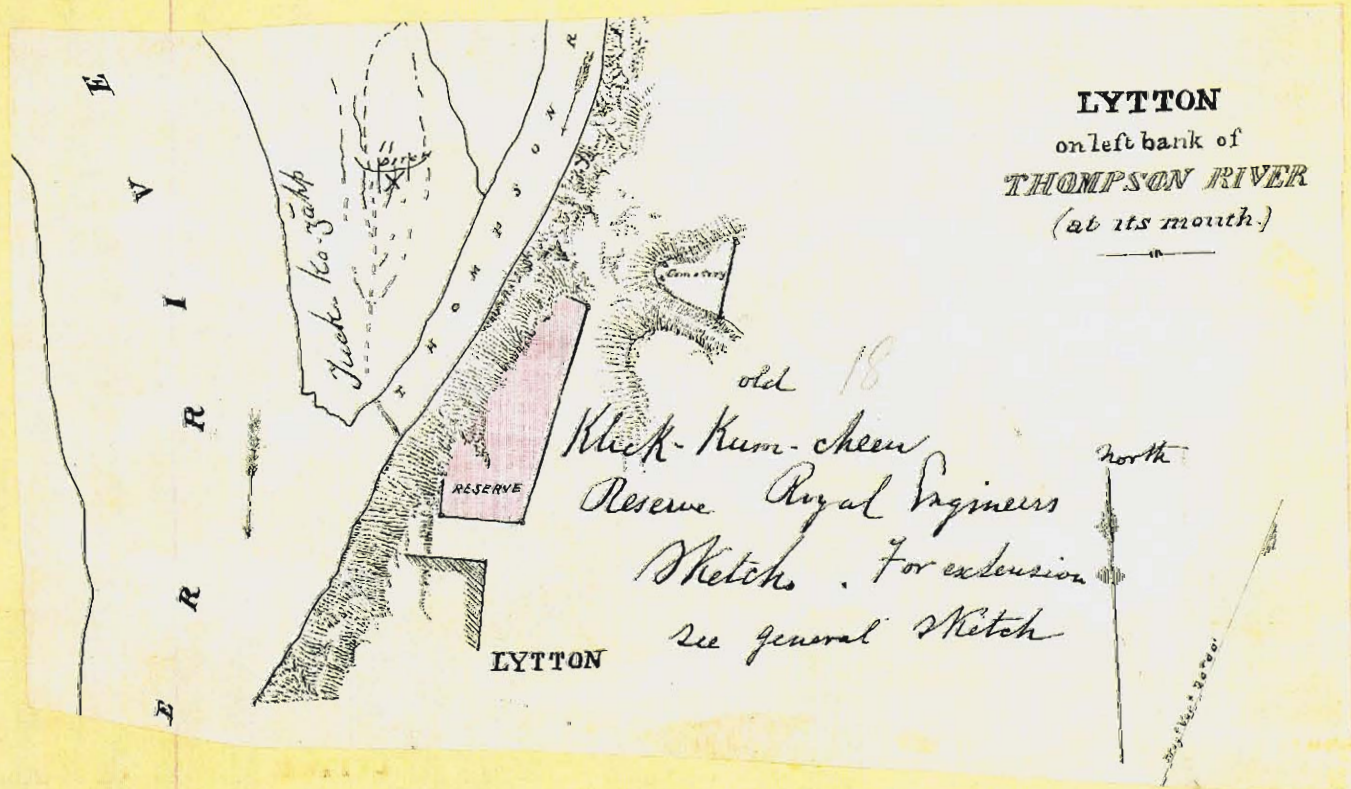 LYTTON
on left bank of
THOMPSON RIVER
(at its mouth.)
E R R I V E
THOMPSON R
Cemetery
old 18
Klick-Kum-cheen
Reserve Royal Engineers
Sketch. For extension
see general sketch
RESERVE
LYTTON
North